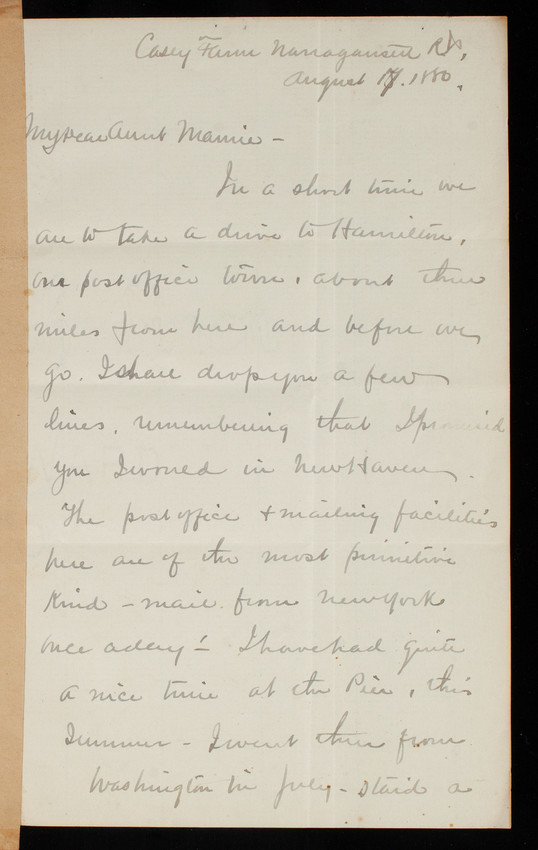 Casey Farm Narragansett R.I.,
August 17. 1880.
My dear Aunt Mamie -
In a short time we
are to take a drive to Hamilton,
our post office town, about three
miles from here and before we
go. I shall drop you a few
lines, remembering that I promised
you I would in New Haven.
The post office & mailing facilities
here are of the most primitive
kind - mail from New York
once a day! - I have had quite
a nice time at the Pier, this
Summer - I went there from
Washington in July - staid a